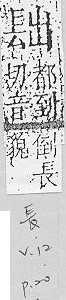 出都到倒長
切音貌
長
v.12
p.20